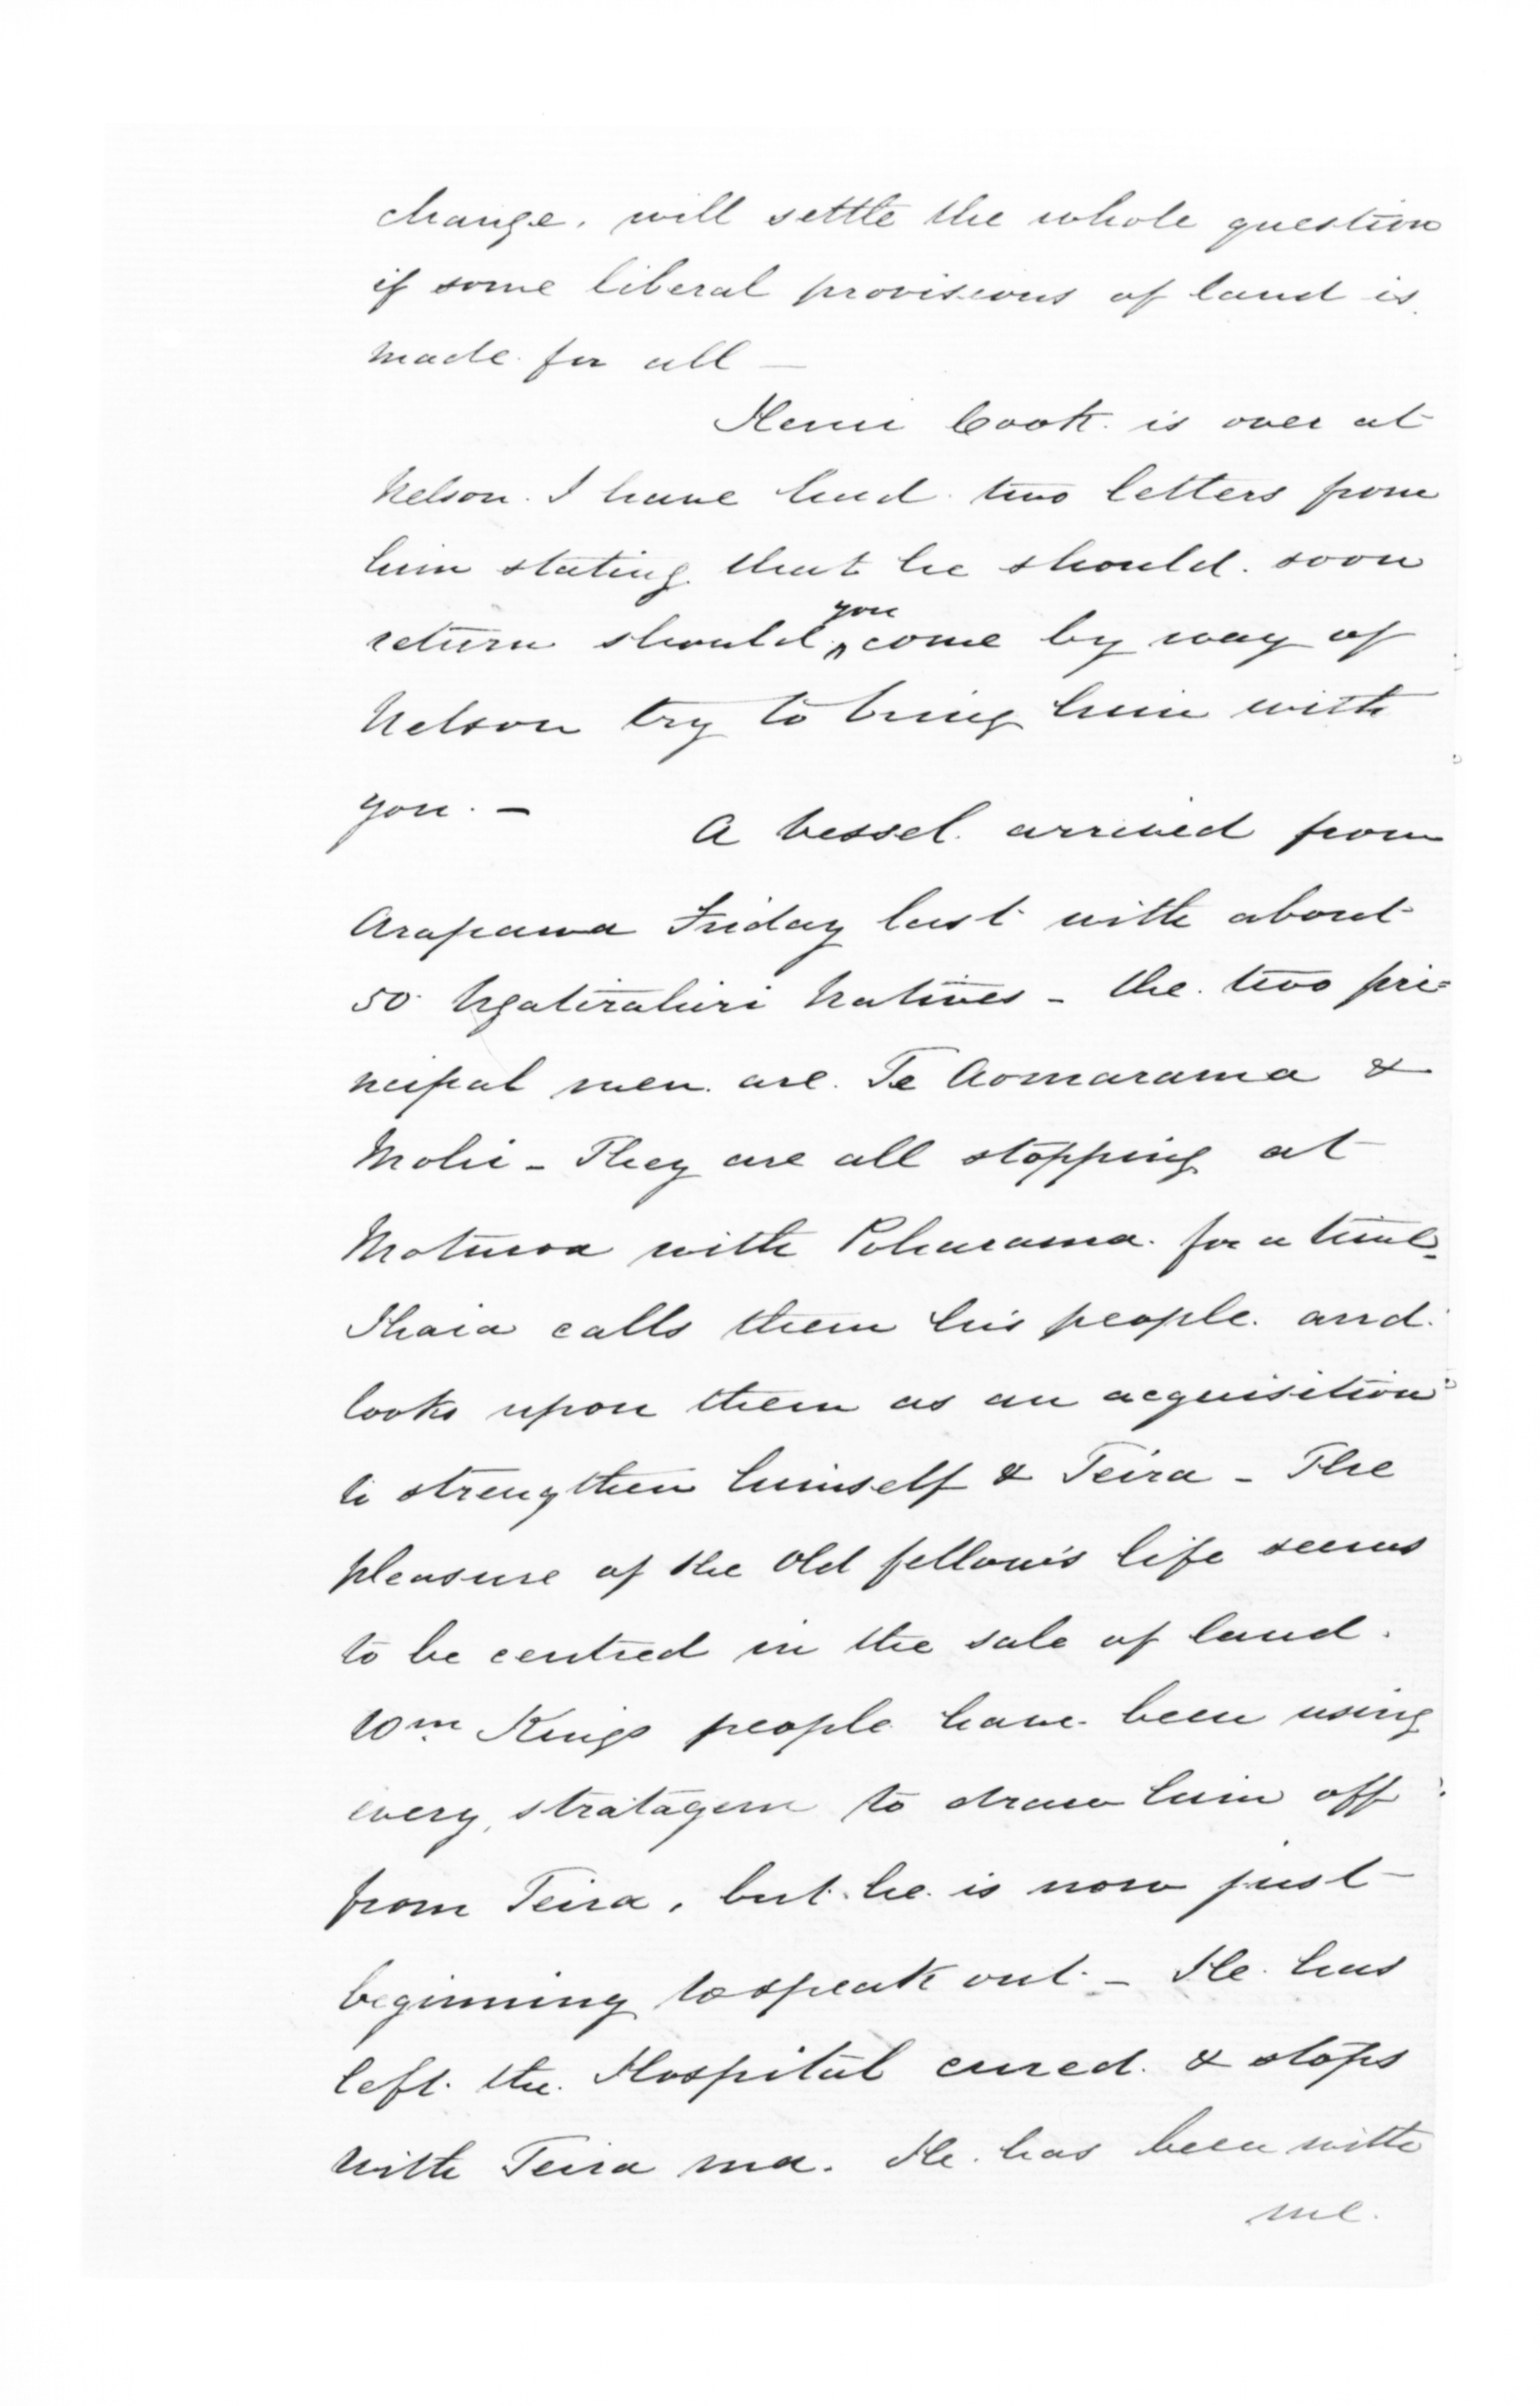 change. will settle the whole question
if some liberal provisions of land is
made for all —
Henri Cook is over at
Nelson. I have had two letters from
him stating that he should soon
return should you come by way of
Nelson try to bring him with
you. —
A vessel arrived from
Arapawa Friday last with about
50 Ngatirahiri Natives - the two pri=
ncipal men are Te Aomarama &
Mohi - They are all stopping at
Moturoa with Poharama for a time -
Ihaia calls them his people and
looks upon them as an acquisition
to strengthen himself & Teira - The
pleasure of the Old fellow's life seems
to be centred in the sale of land.
Wm Kings people have been using
every stratagem to draw him off
from Teira, but he is now just
beginning to speak out - He has
left the Hospital cured & stops
with Teira ma. He has been with
me.